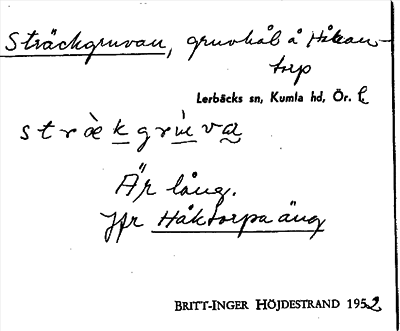 Sträckgruvan, gruvhål å Håkan-
torp
Lerbäcks sn, Kumla hd, Ör. l.
stræ̀kgrùva
Är lång.
Jfr Håktorpaäng
BRITT-INGER HÖJDESTRAND 1952